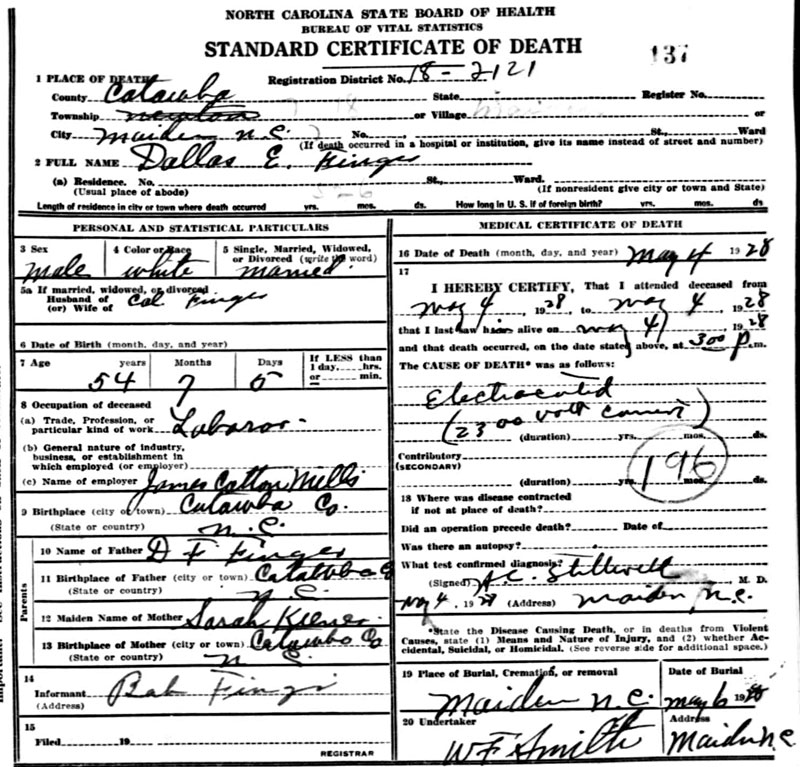 NORTH CAROLINA STATE BOARD OF HEALTH
BUREAU OF VITAL STATISTICS
STANDARD CERTIFICATE OF DEATH
137
1 PLACE OF DEATH Registration District No. 18-2121
County Catawba State Register No.
Township Newton or Village or
City Maiden N.C. No. St., Ward
(If death occurred in a hospital or institution, give its name instead of street and number)
2 FULL NAME Dallas E. Finger
(a) Residence. No. St., Ward.
(Usual place of abode) (If nonresident give city or town and State)
Length of residence in city or town where death occurred yrs. mos. ds. How long in U. S. if of foreign birth? yrs. mos. ds.
PERSONAL AND STATISTICAL PARTICULARS
3 Sex 4 Color or Race 5 Single, Married, Widowed,
or Divorced (write the word)
male white married
5a If married, widowed, or divorced
Husband of
(or) Wife of Cal Finger
6 Date of Birth (month, day, and year)
7 Age years Months Days If LESS than
1 day, hrs.
or min.
54 7 5
8 Occupation of deceased
(a) Trade, Profession, or
particular kind of work Labaror
(b) General nature of industry,
business, or establishment in
which employed (or employer)
(c) Name of employer James Cotton Mills
9 Birthplace (city or town) Catawba Co.
(State or country) N.C.
Parents
10 Name of Father D F Finger
11 Birthplace of Father (city or town) Catawba Co
(State or country) N.C.
12 Maiden Name of Mother Sarah
13 Birthplace of Mother (city or town) Catawba Co
(State or country) N C
14
Informant Bab Finger
(Address)
15
Filed 19
REGISTRAR
MEDICAL CERTIFICATE OF DEATH
16 Date of Death (month, day, and year) May 4 1928
17
I HEREBY CERTIFY, That I attended deceased from
May 4, 1928, to May 4, 1928
that I last saw him alive on May 4, 1928
and that death occurred, on the date stated above, at 3:00 P.m.
The CAUSE OF DEATH* was as follows:
Electrocuted
(2300 volt current)
(duration) yrs. mos. ds.
Contributory
(SECONDARY)
196
(duration) yrs. mos. ds.
18 Where was disease contracted
if not at place of death?
Did an operation precede death? Date of
Was there an autopsy?
What test confirmed diagnosis?
(Signed) H.C. Stillwell M. D.
May 4, 1928 (Address) Maiden, N.C.
*State the Disease Causing Death, or in deaths from Violent
Causes, state (1) Means and Nature of Injury, and (2) whether Ac-
cidental, Suicidal, or Homicidal. (See reverse side for additional space.)
19 Place of Burial, Cremation, or removal Date of Burial
Maiden N.C. May 6 1928
20 Undertaker Address
W F Smith Maiden N.C.